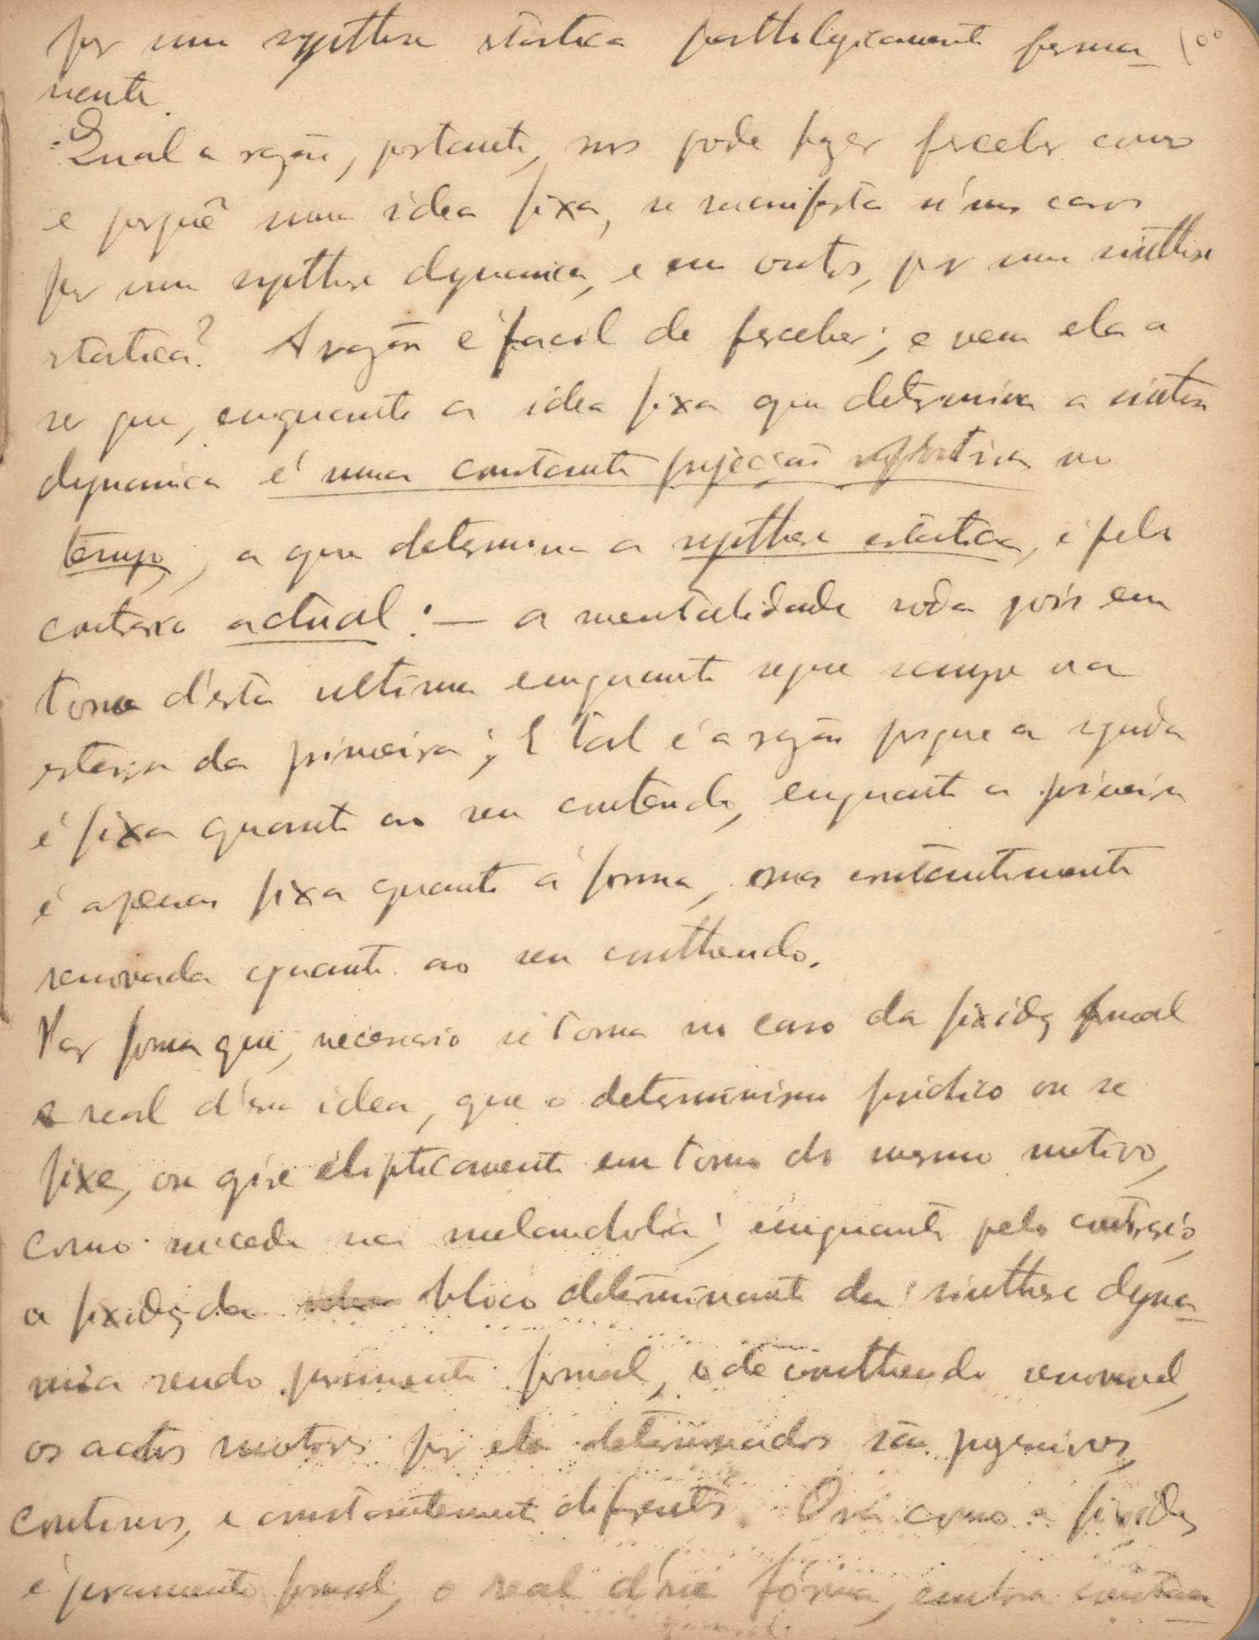 por uma synthese statica pathologicamente perma-
nente.
Qual a razão, portanto, nos pode fazer perceber como
e porquê uma idea fixa, se manifesta n'uns casos
por uma synthese dynamica, e em outros, por uma sinthese
statica? A razão é facil de perceber; e vem ela a
ser que, emquanto a idea fixa que determina a sintese
dynamica é uma constante projecção no
tempo, a que determina a synthese estatica, é pelo
contrario actual: — a mentalidade roda pois em
torno d'esta ultima emquanto segue sempre na
esteira da primeira; E tal é a razão porque a segunda
é fixa quanto ao seu contendo, emquanto a primeira
é apenas fixa quanto á forma, mas constantemente
renovada quanto ao seu conthendo.
Por forma que, necessario se torna no caso da fixidez formal
e real d'essa idea, que o determinismo psichico ou se
fixe, ou gire elipticamente em torno do mesmo motivo,
como succede na melancholia; emquanto pelo contrario,
a fixidez do bloco determinante da sinthese dyna-
mica sendo puramente formal, e de conthendo renovavel,
os actos motores por ela determinados são progressivos,
continuos, e constantemente diferentes. Ora como a fixidez
é puramente formal, o real d'essa fórma, embora